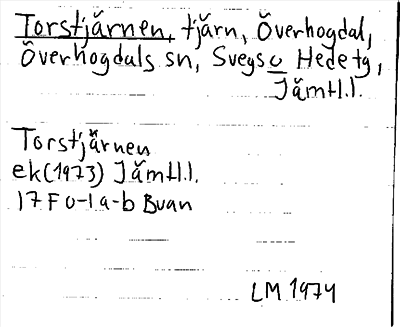 Torstjärnen, tjärn, Överhogdal,
Överhogdals sn, Svegs o Hede tg,
Jämtl.l.
Torstjärnen
ek(1973) Jämtl.l.
17F 0-1a-b Buan
LM 1974